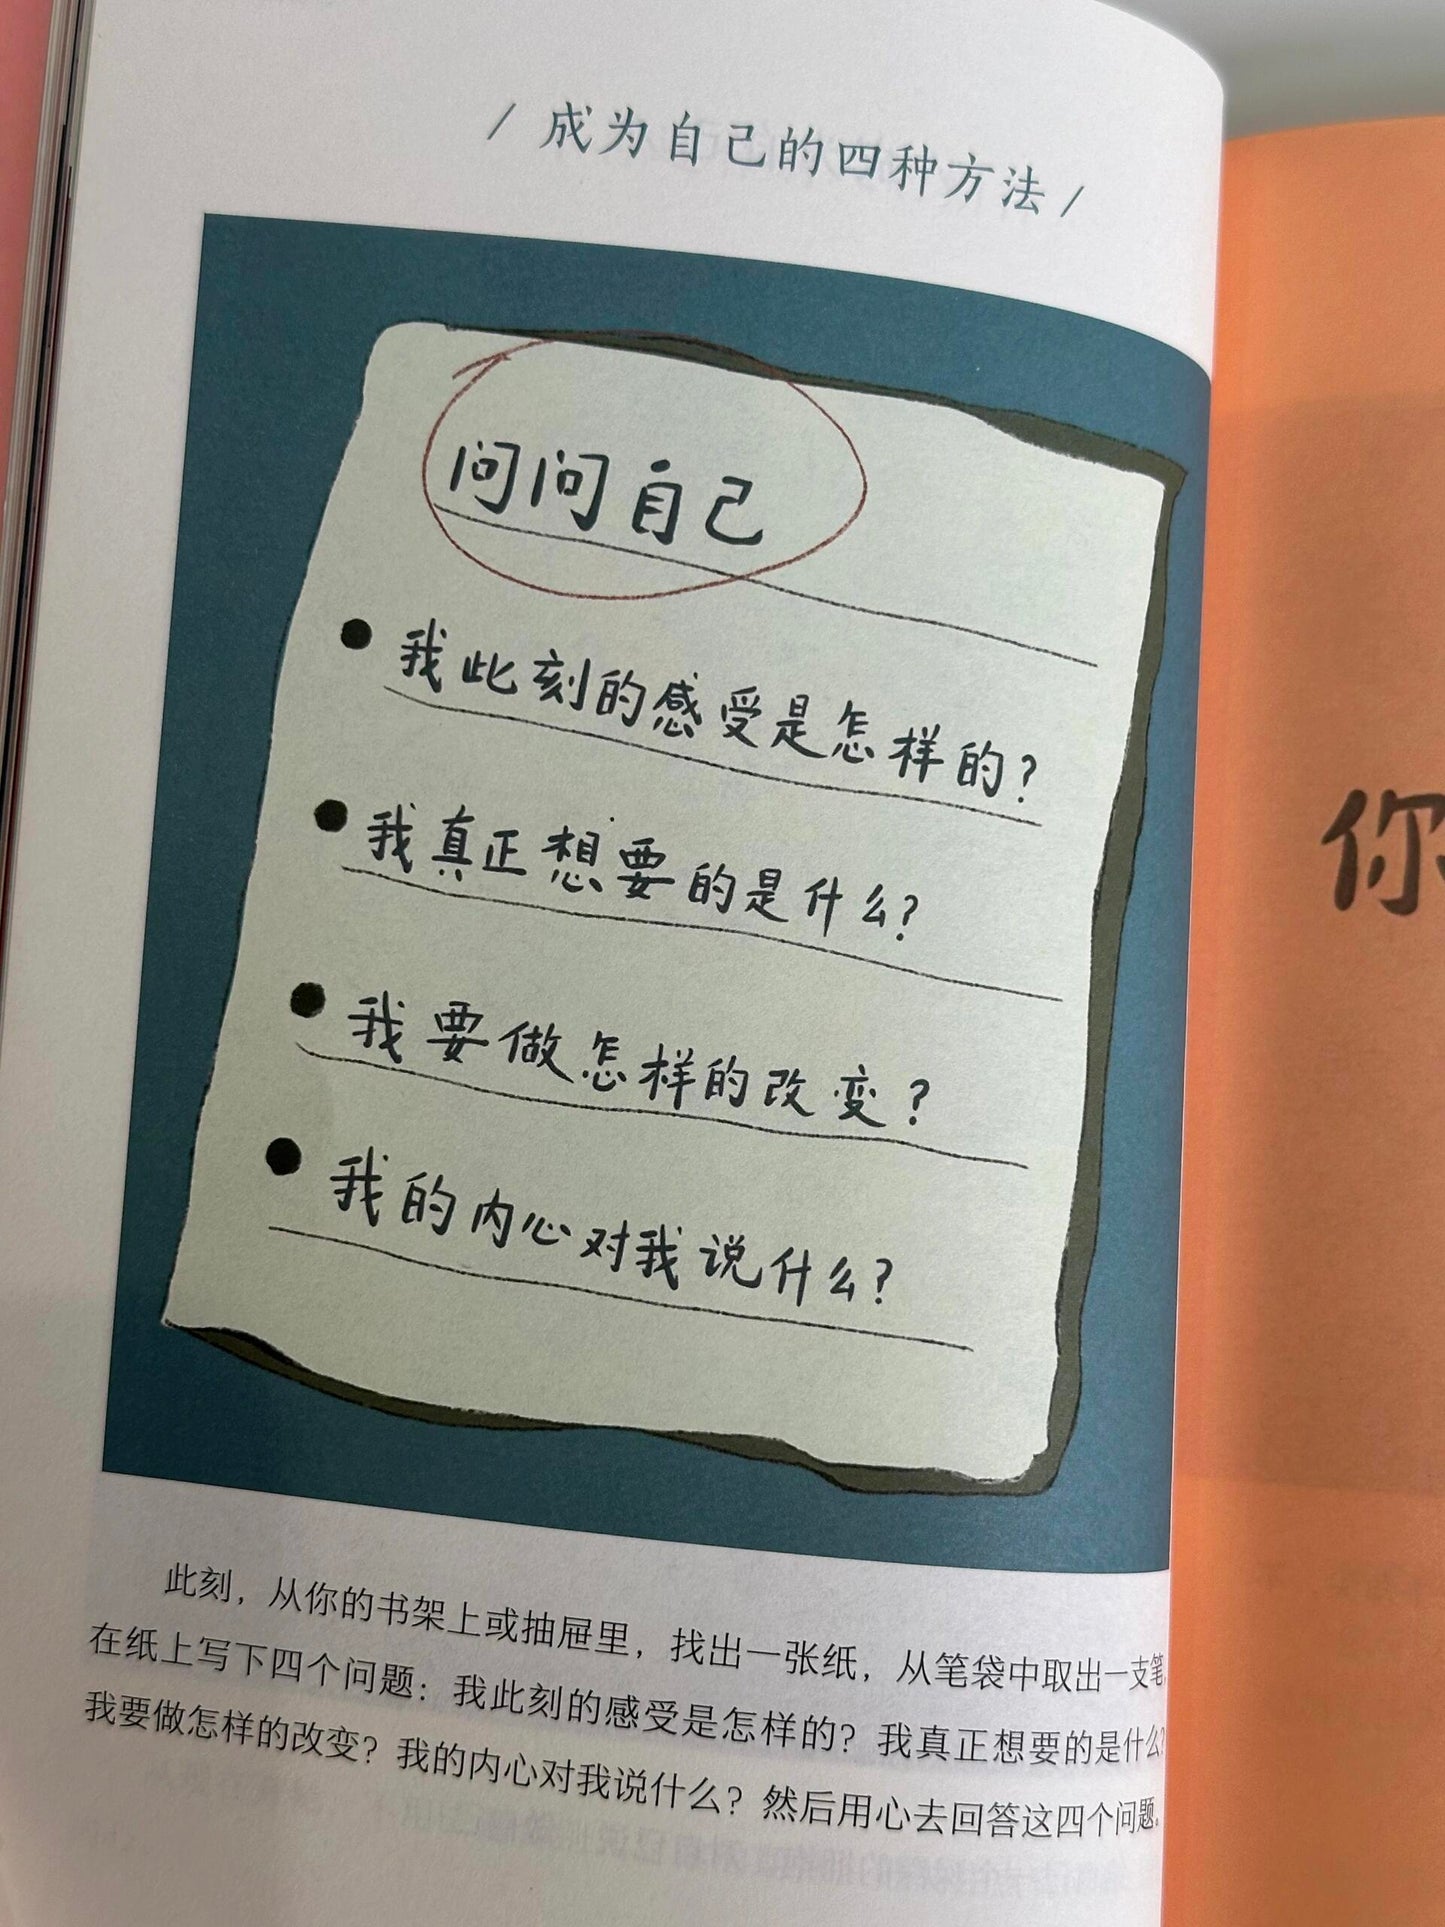 / 成为自己的四种方法 /
问问自己
● 我此刻的感受是怎样的？
● 我真正想要的是什么？
● 我要做怎样的改变？
● 我的内心对我说什么？
此刻，从你的书架上或抽屉里，找出一张纸，从笔袋中取出一支笔，
在纸上写下四个问题：我此刻的感受是怎样的？我真正想要的是什么？
我要做怎样的改变？我的内心对我说什么？然后用心去回答这四个问题。
你